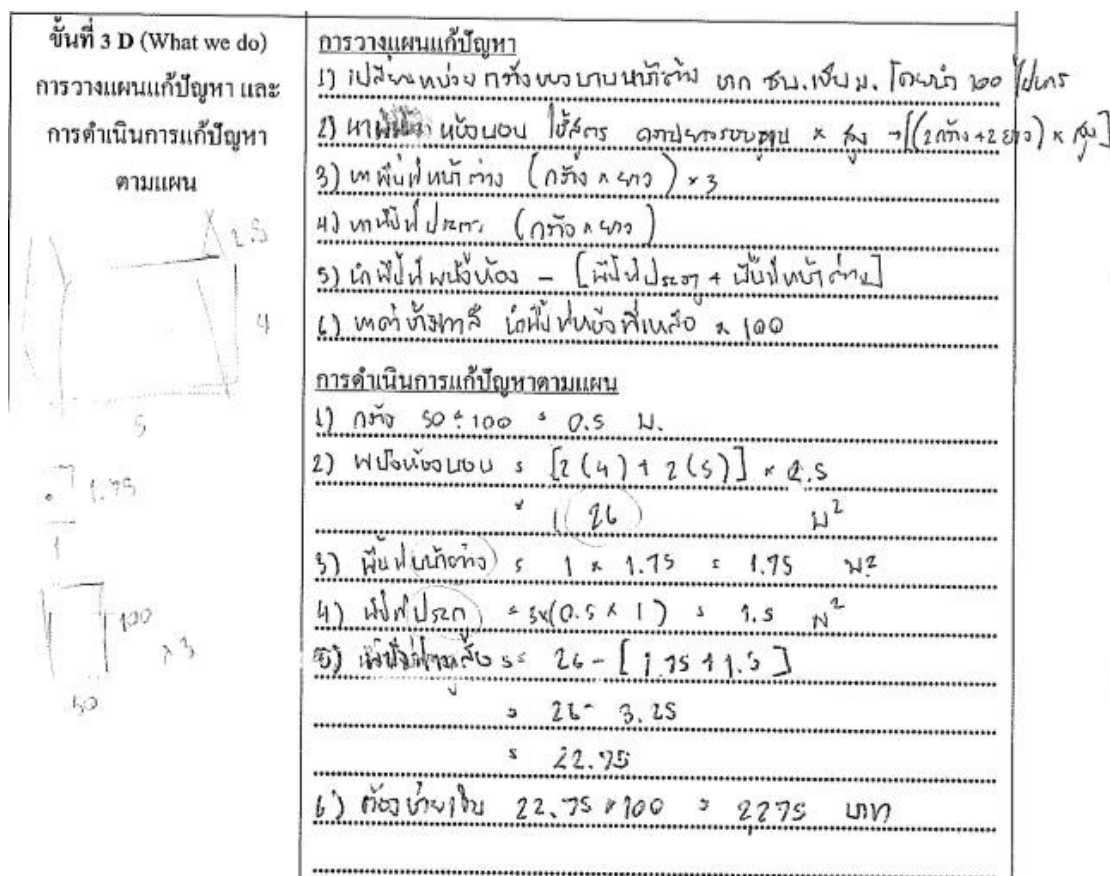 ขั้นที่ 3 D (What we do)
การวางแผนแก้ปัญหา และ
การดำเนินการแก้ปัญหา
ตามแผน
2.5
4
5
1.75
1
100
× 3
50
การวางแผนแก้ปัญหา
1) เปลี่ยนหน่วย กว้างของบานหน้าต่าง จาก ซม. เป็น ม. โดยนำ 100 ไปหาร
2) หา ห้องนอน ใช้สูตร ความยาวรอบฐาน × สูง → [(2กว้าง+2ยาว) × สูง]
3) หาพื้นที่หน้าต่าง (กว้าง × ยาว) × 3
4) หาพื้นที่ประตู (กว้าง × ยาว)
5) นำพื้นที่ผนังห้อง - [พื้นที่ประตู + พื้นที่หน้าต่าง]
6) หาค่าจ้างทาสี นำพื้นที่ ที่เหลือ × 100
การดำเนินการแก้ปัญหาตามแผน
1) กว้าง 50 ÷ 100 = 0.5 ม.
2) ผนังห้องนอน = [2(4) + 2(5)] × 2.5
= 26 ม²
3) พื้นที่หน้าต่าง = 1 × 1.75 = 1.75 ม²
4) พื้นที่ประตู = 3×(0.5 × 1) = 1.5 ม²
5) = 26 - [1.75 + 1.5]
= 26 - 3.25
= 22.75
6) ต้องจ่ายเงิน 22.75 × 100 = 2275 บาท